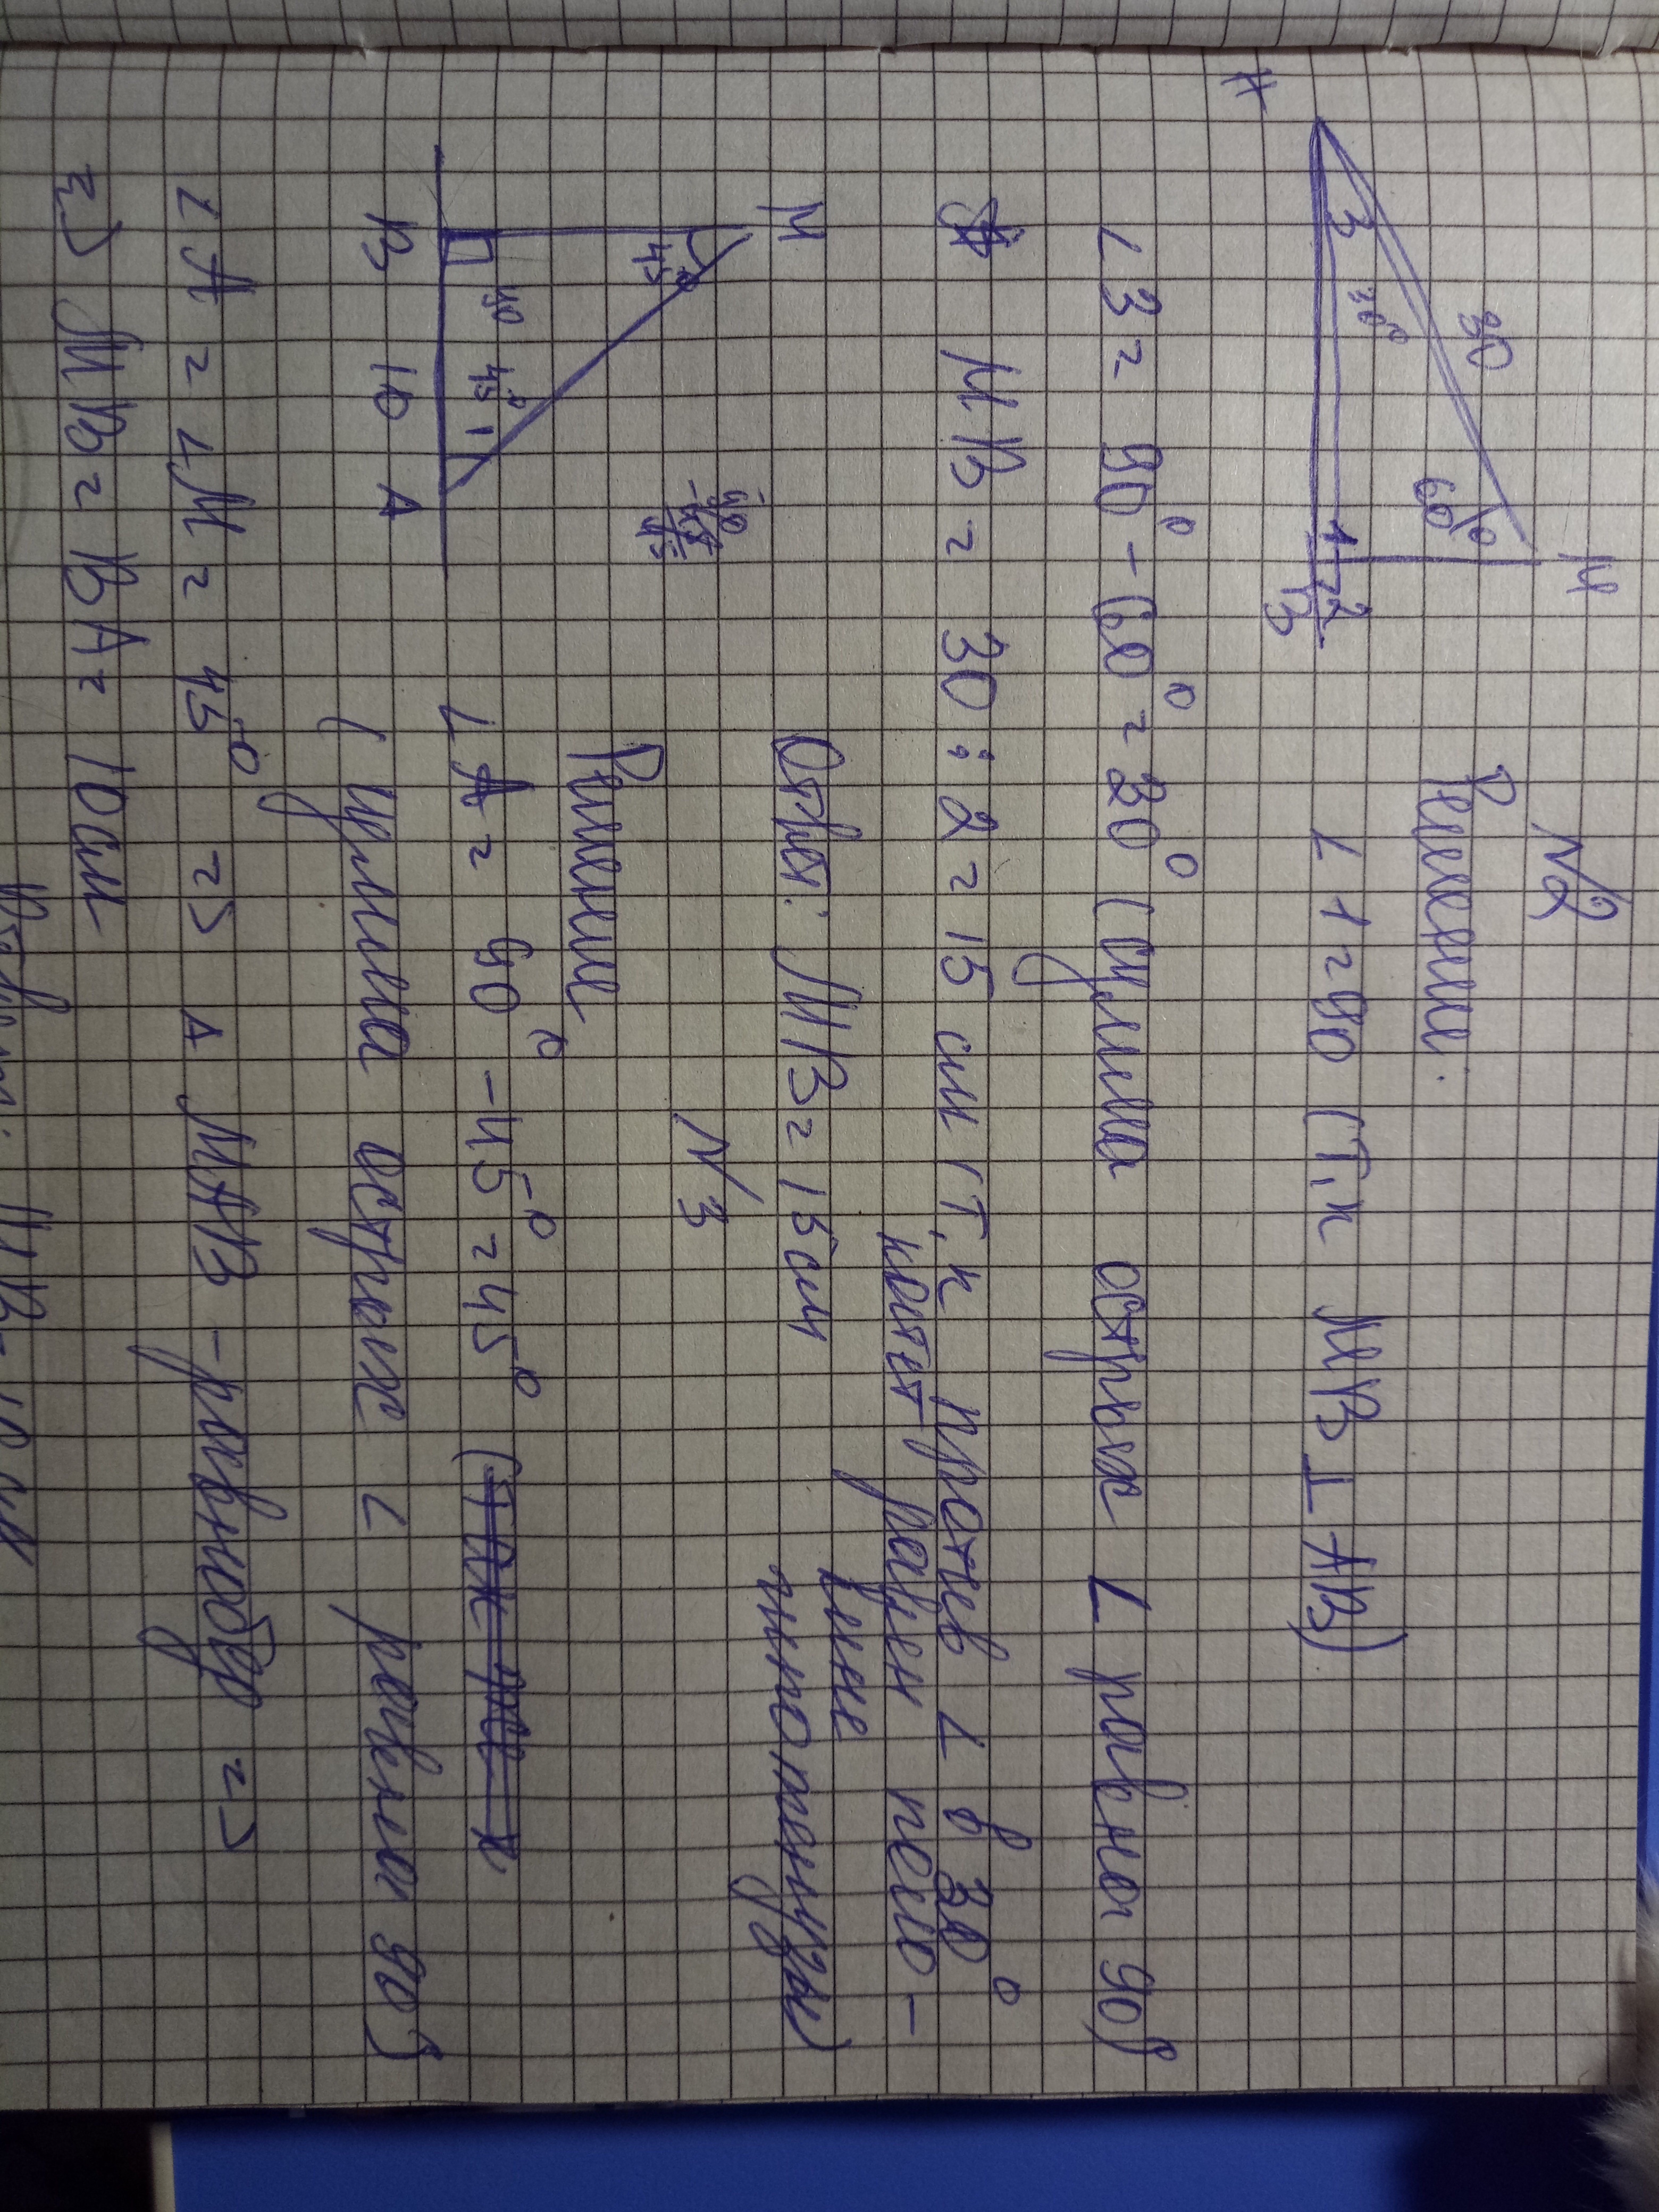 N2
Решение.
M
30
60°
3
30°
1
2
A
B
∠1=90 (т.к MB⊥AB)
∠3= 90°-60°=30° (сумма острых ∠ равна 90)
MB = 30:2=15 см (т,к против ∠ в 30°
катет равен поло-
вине
гипотенузы)
Ответ: MB=15см
N3
Решение
M
45°
90
45°
1
B 10 A
90
-45
45
∠A = 90°-45°=45° (
(сумма острых ∠ равна 90)
∠A = ∠M = 45° => △ MAB -равнобедр =>
=> MB = BA= 10см
Ответ: MB=10см